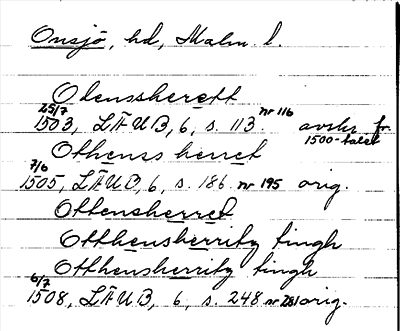 Onsjö, hd, Malm. l.
Olenssherett
25/7 1503, LÄUB, 6, s. 113. nr 116 avskr. fr. 1500-talet
Othenss herret
7/6 1505, LÄUB, 6, s. 186. nr 195 orig.
Ottensherret
Otthensherritz tingh
Otthensherritz tingh
6/7 1508, LÄUB, 6, s. 248 nr 281 orig.